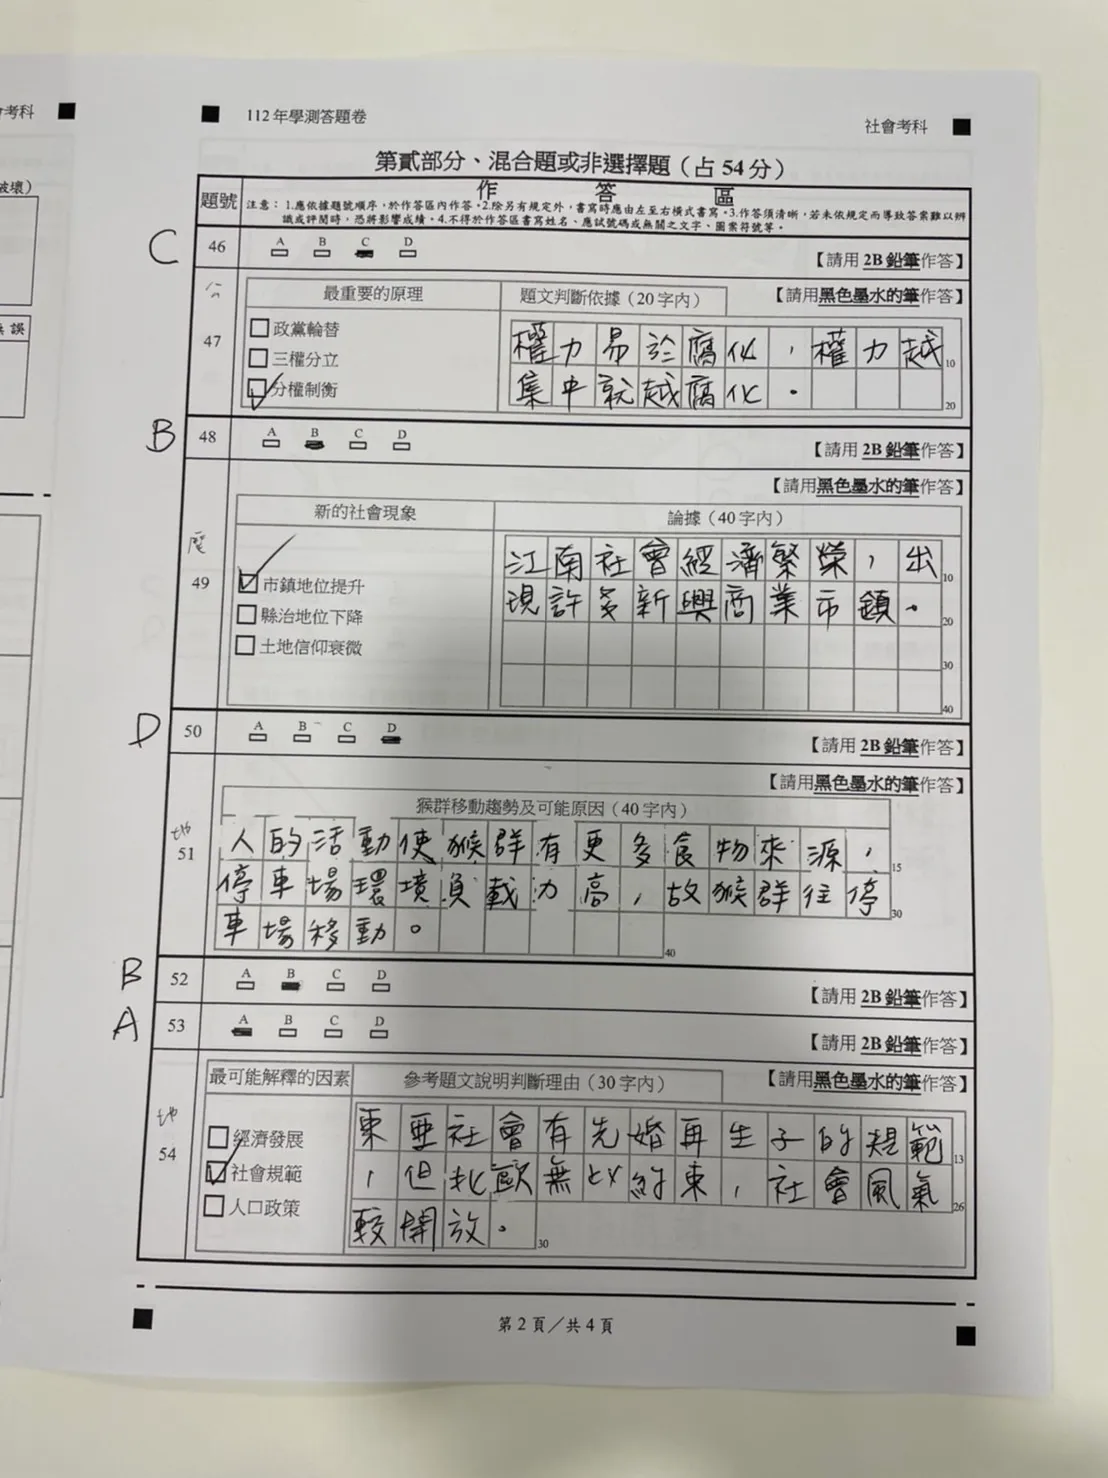 會考科
112年學測答題卷
社會考科
破壞)
無 誤
第貳部分、混合題或非選擇題(占54分)
題號
作 答 區
注意:1.應依據題號順序,於作答區內作答。2.除另有規定外,書寫時應由左至右橫式書寫。3.作答須清晰,若未依規定而導致答案難以辨
識或評閱時,恐將影響成績。4.不得於作答區書寫姓名、應試號碼或無關之文字、圖案符號等。
C
46
A B C D
【請用2B鉛筆作答】
公
47
最重要的原理
題文判斷依據(20字內)
【請用黑色墨水的筆作答】
政黨輪替
三權分立
分權制衡
權力易於腐化,權力越
10
集中就越腐化。
20
B
48
A B C D
【請用2B鉛筆作答】
【請用黑色墨水的筆作答】
歷
49
新的社會現象
論據(40字內)
市鎮地位提升
縣治地位下降
土地信仰衰微
江南社會經濟繁榮,出
10
現許多新興商業市鎮。
20
30
40
D
50
A B C D
【請用2B鉛筆作答】
【請用黑色墨水的筆作答】
地
51
猴群移動趨勢及可能原因(40字內)
人的活動使猴群有更多食物來源,
15
停車場環境負載力高,故猴群往停
30
車場移動。
40
B
52
A B C D
【請用2B鉛筆作答】
A
53
A B C D
【請用2B鉛筆作答】
地
54
最可能解釋的因素
參考題文說明判斷理由(30字內)
【請用黑色墨水的筆作答】
經濟發展
社會規範
人口政策
東亞社會有先婚再生子的規範
13
,但北歐無此約束,社會風氣
26
較開放。
30
第2頁/共4頁